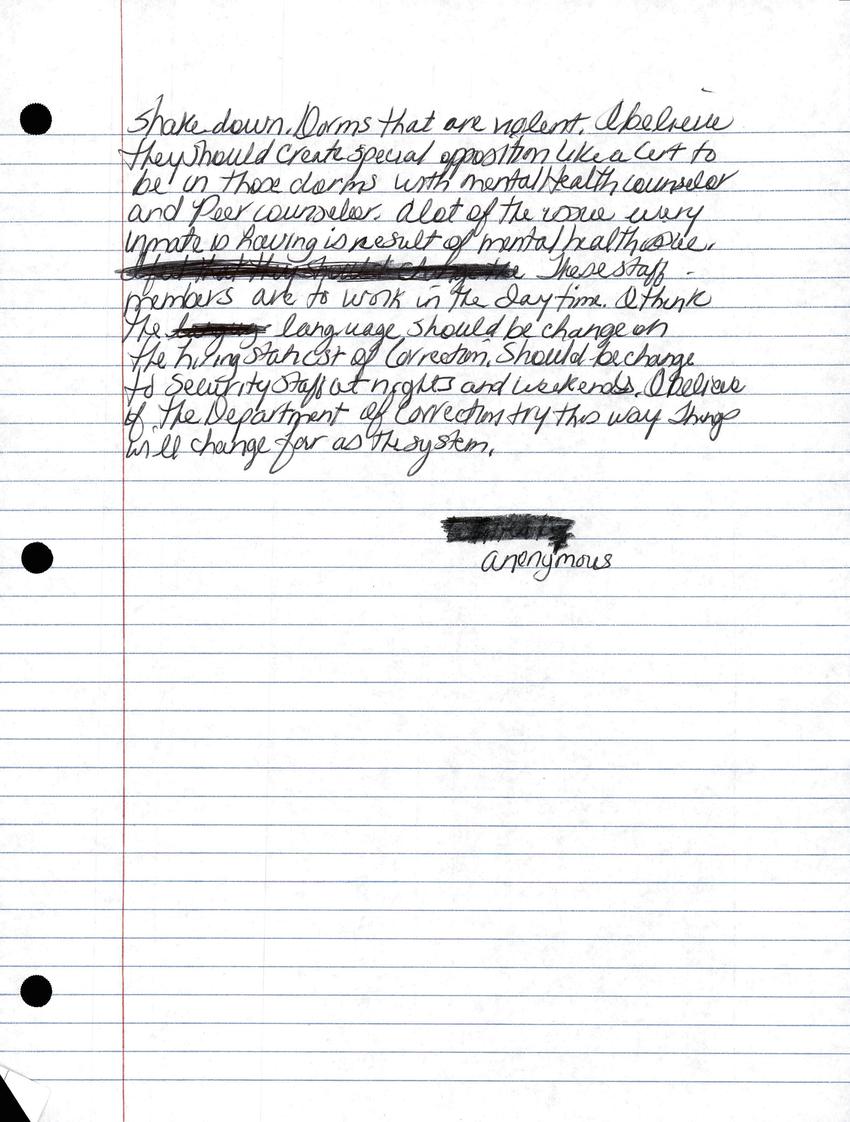 shake down. Dorms that are violent. I believe
they should create special opposition like a Cert to
be in those dorms with mental Health counselor
and Peer counselor. Alot of the issue every
inmate is having is result of mental health issue.
These staff
members are to work in the day time. I think
the language should be change on
the hiring of Correction. Should be change
to Security staff at nights and weekends. I believe
if the Department of Correction try this way Things
will change far as the system.
anonymous